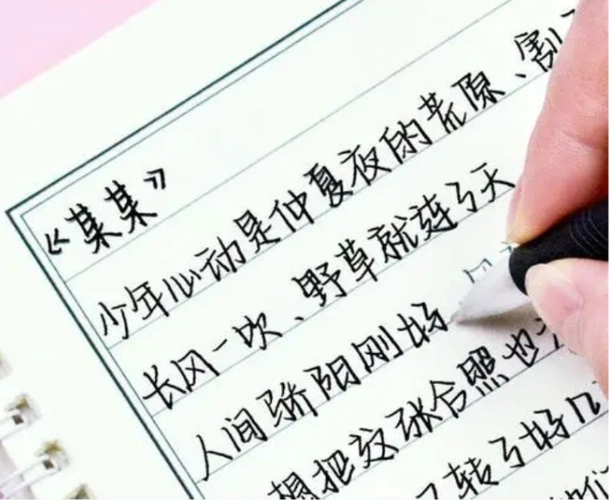 《某某》
少年心动是仲夏夜的荒原、割
长风一吹、野草就连了天
人间骄阳刚好
想把这张合照也
了转了好几